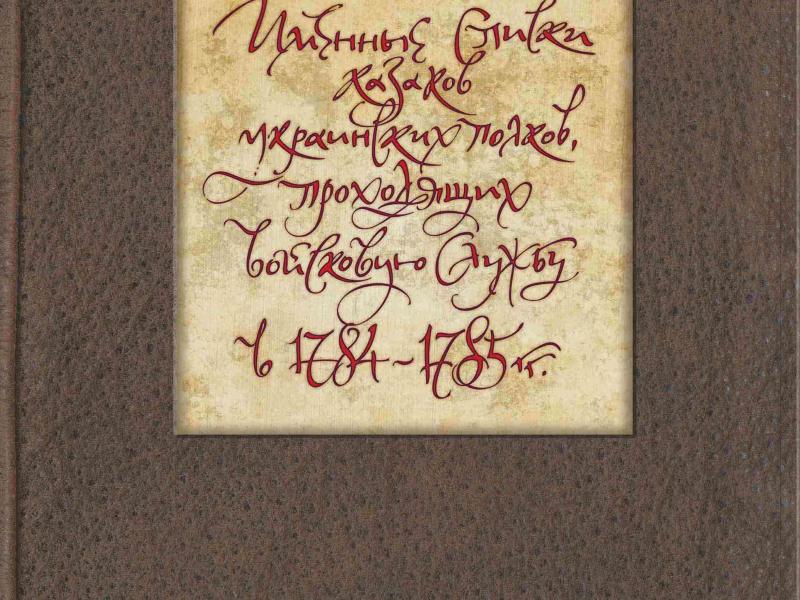 Именные списки
казаков
украинских полков,
проходящих
войсковую службу
в 1784-1785 гг.